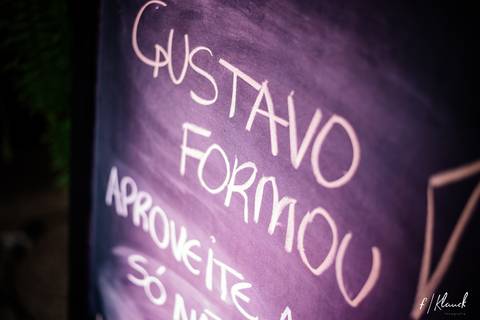 GUSTAVO
FORMOU
APROVEITE A
SÓ
f/Klauck